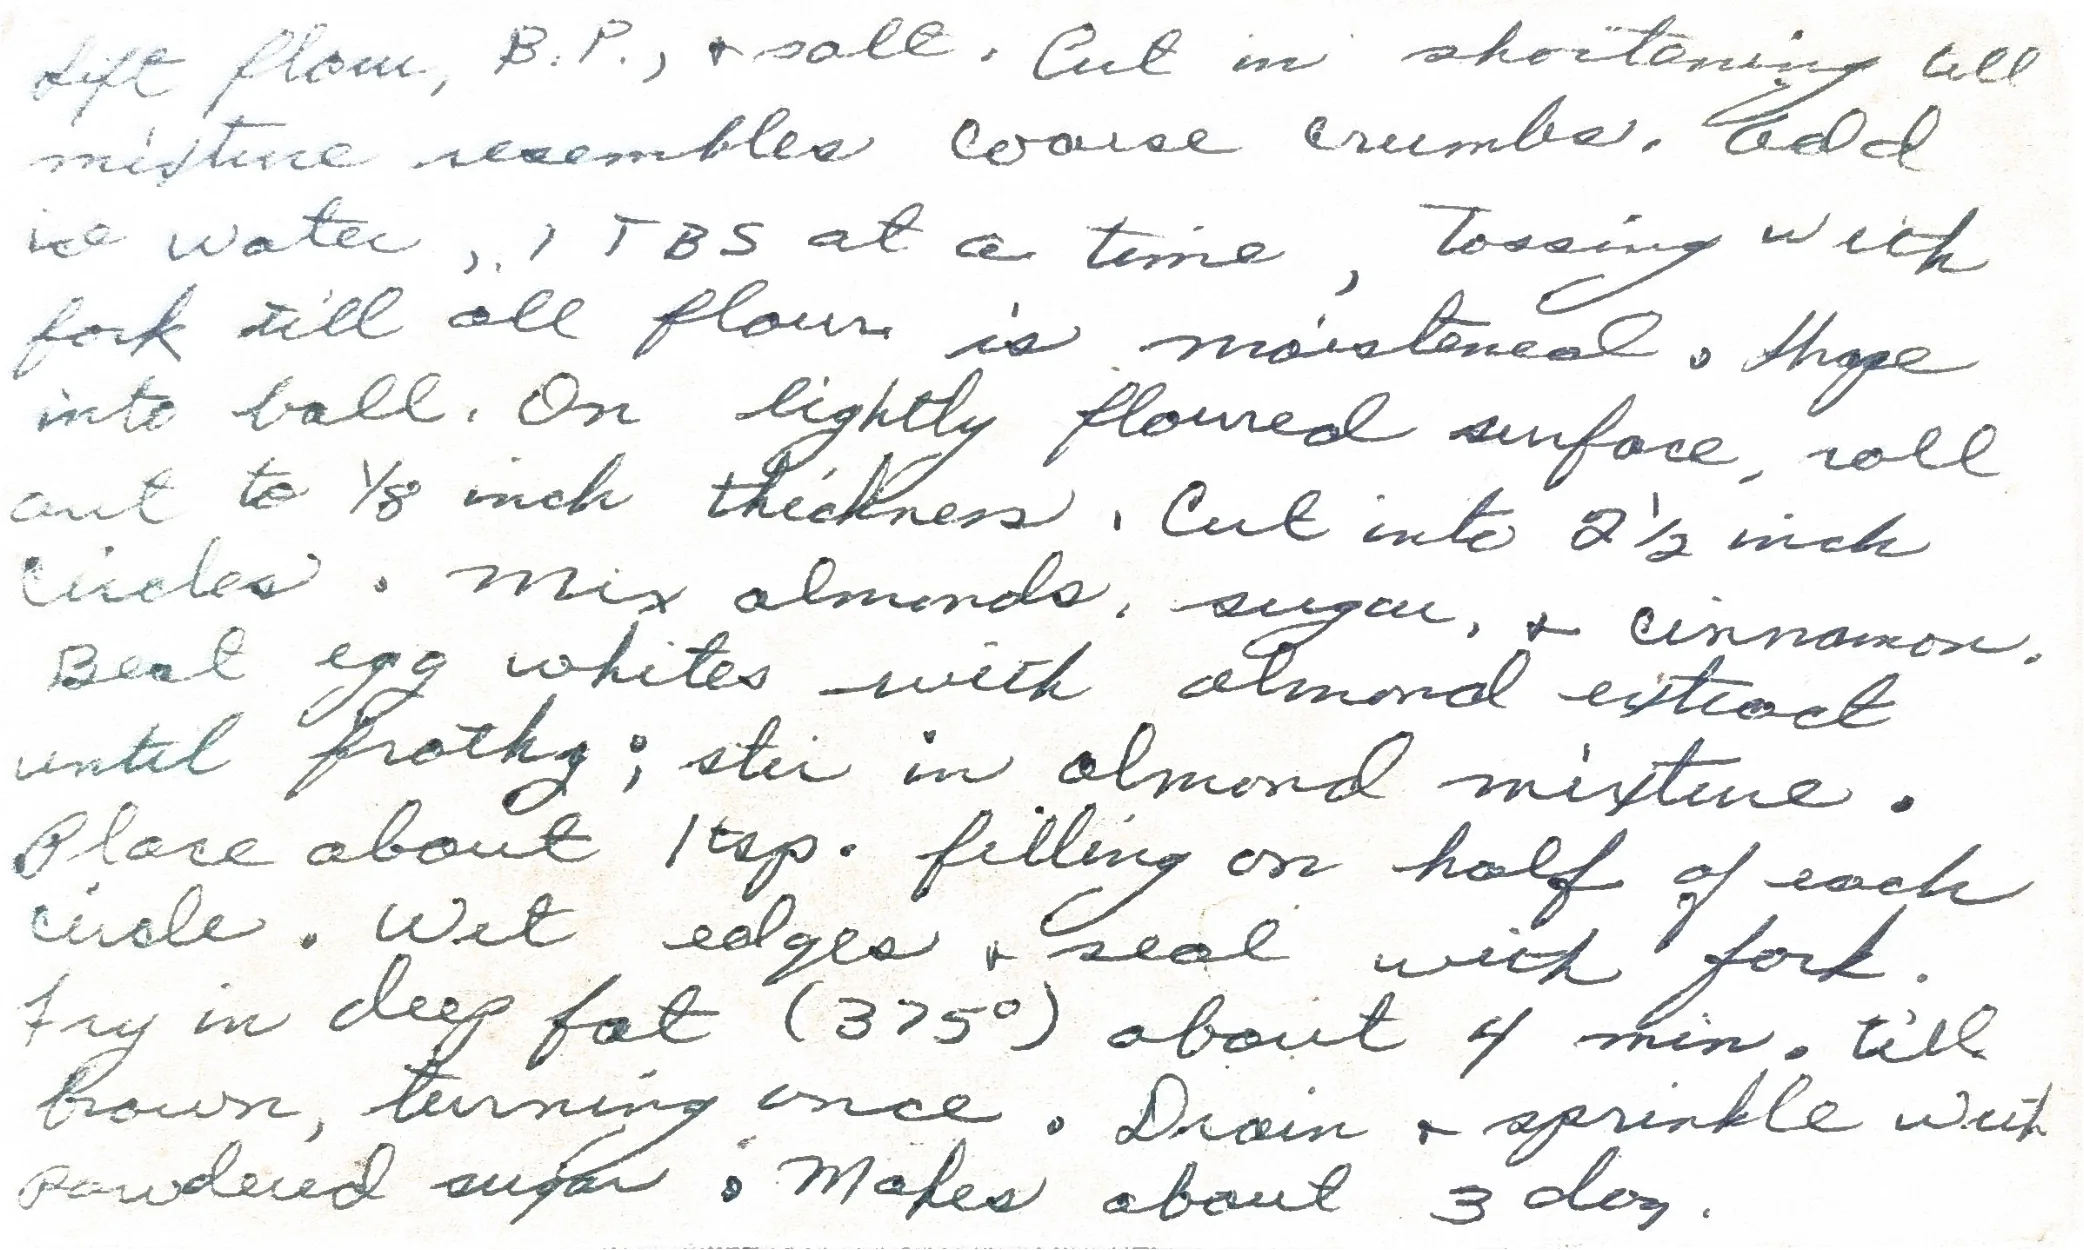 Sift flour, B.P., & salt. Cut in shortening till
mixture resembles coarse crumbs. Add
ice water, 1 TBS at a time, Tossing with
fork till all flour is moistened. Shape
into ball. On lightly floured surface, roll
out to 1/8 inch thickness. Cut into 2 1/2 inch
circles. Mix almonds, sugar, & cinnamon.
Beat egg whites with almond extract
until frothy; stir in almond mixture.
Place about 1 tsp. filling on half of each
circle. Wet edges & seal with fork.
Fry in deep fat (375°) about 4 min. till
brown, turning once. Drain & sprinkle with
powdered sugar. Makes about 3 doz.